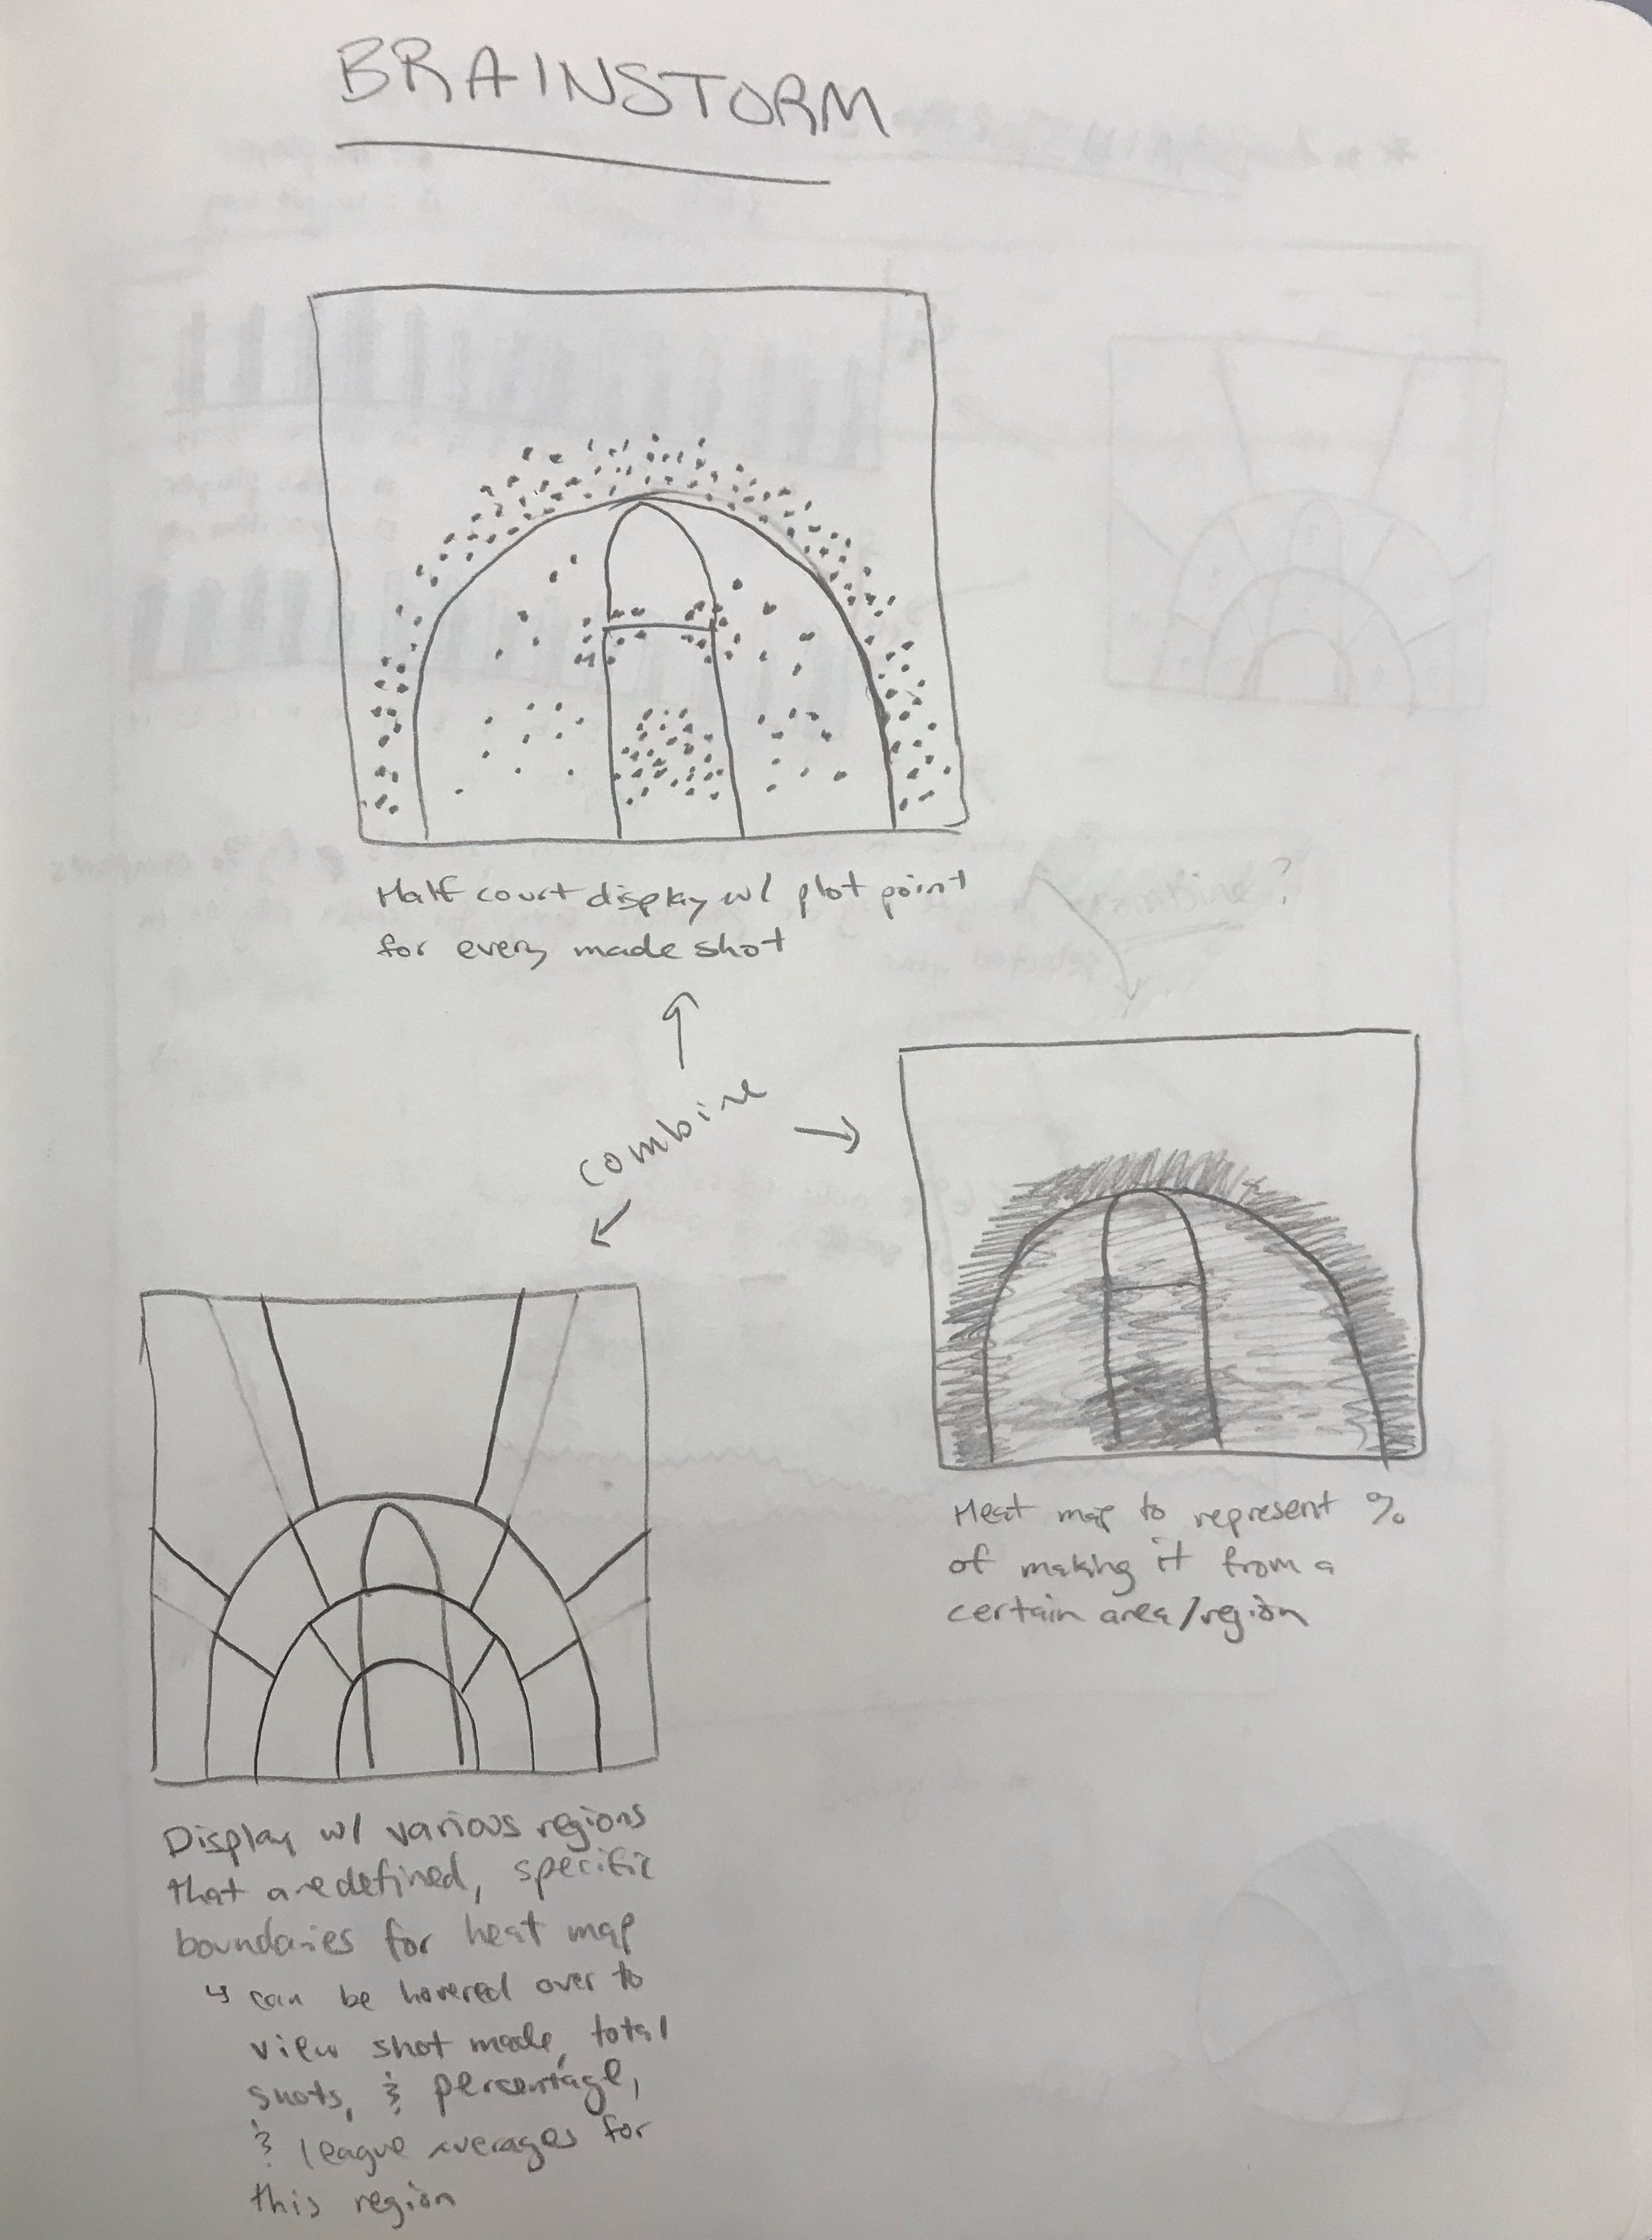 BRAINSTORM
Half court display w/ plot point
for every made shot
combine
Heat map to represent %
of making it from a
certain area/region
Display w/ various regions
that are defined, specific
boundaries for heat map
↳ can be hovered over to
view shot made, total
shots, & percentage,
& league averages for
this region